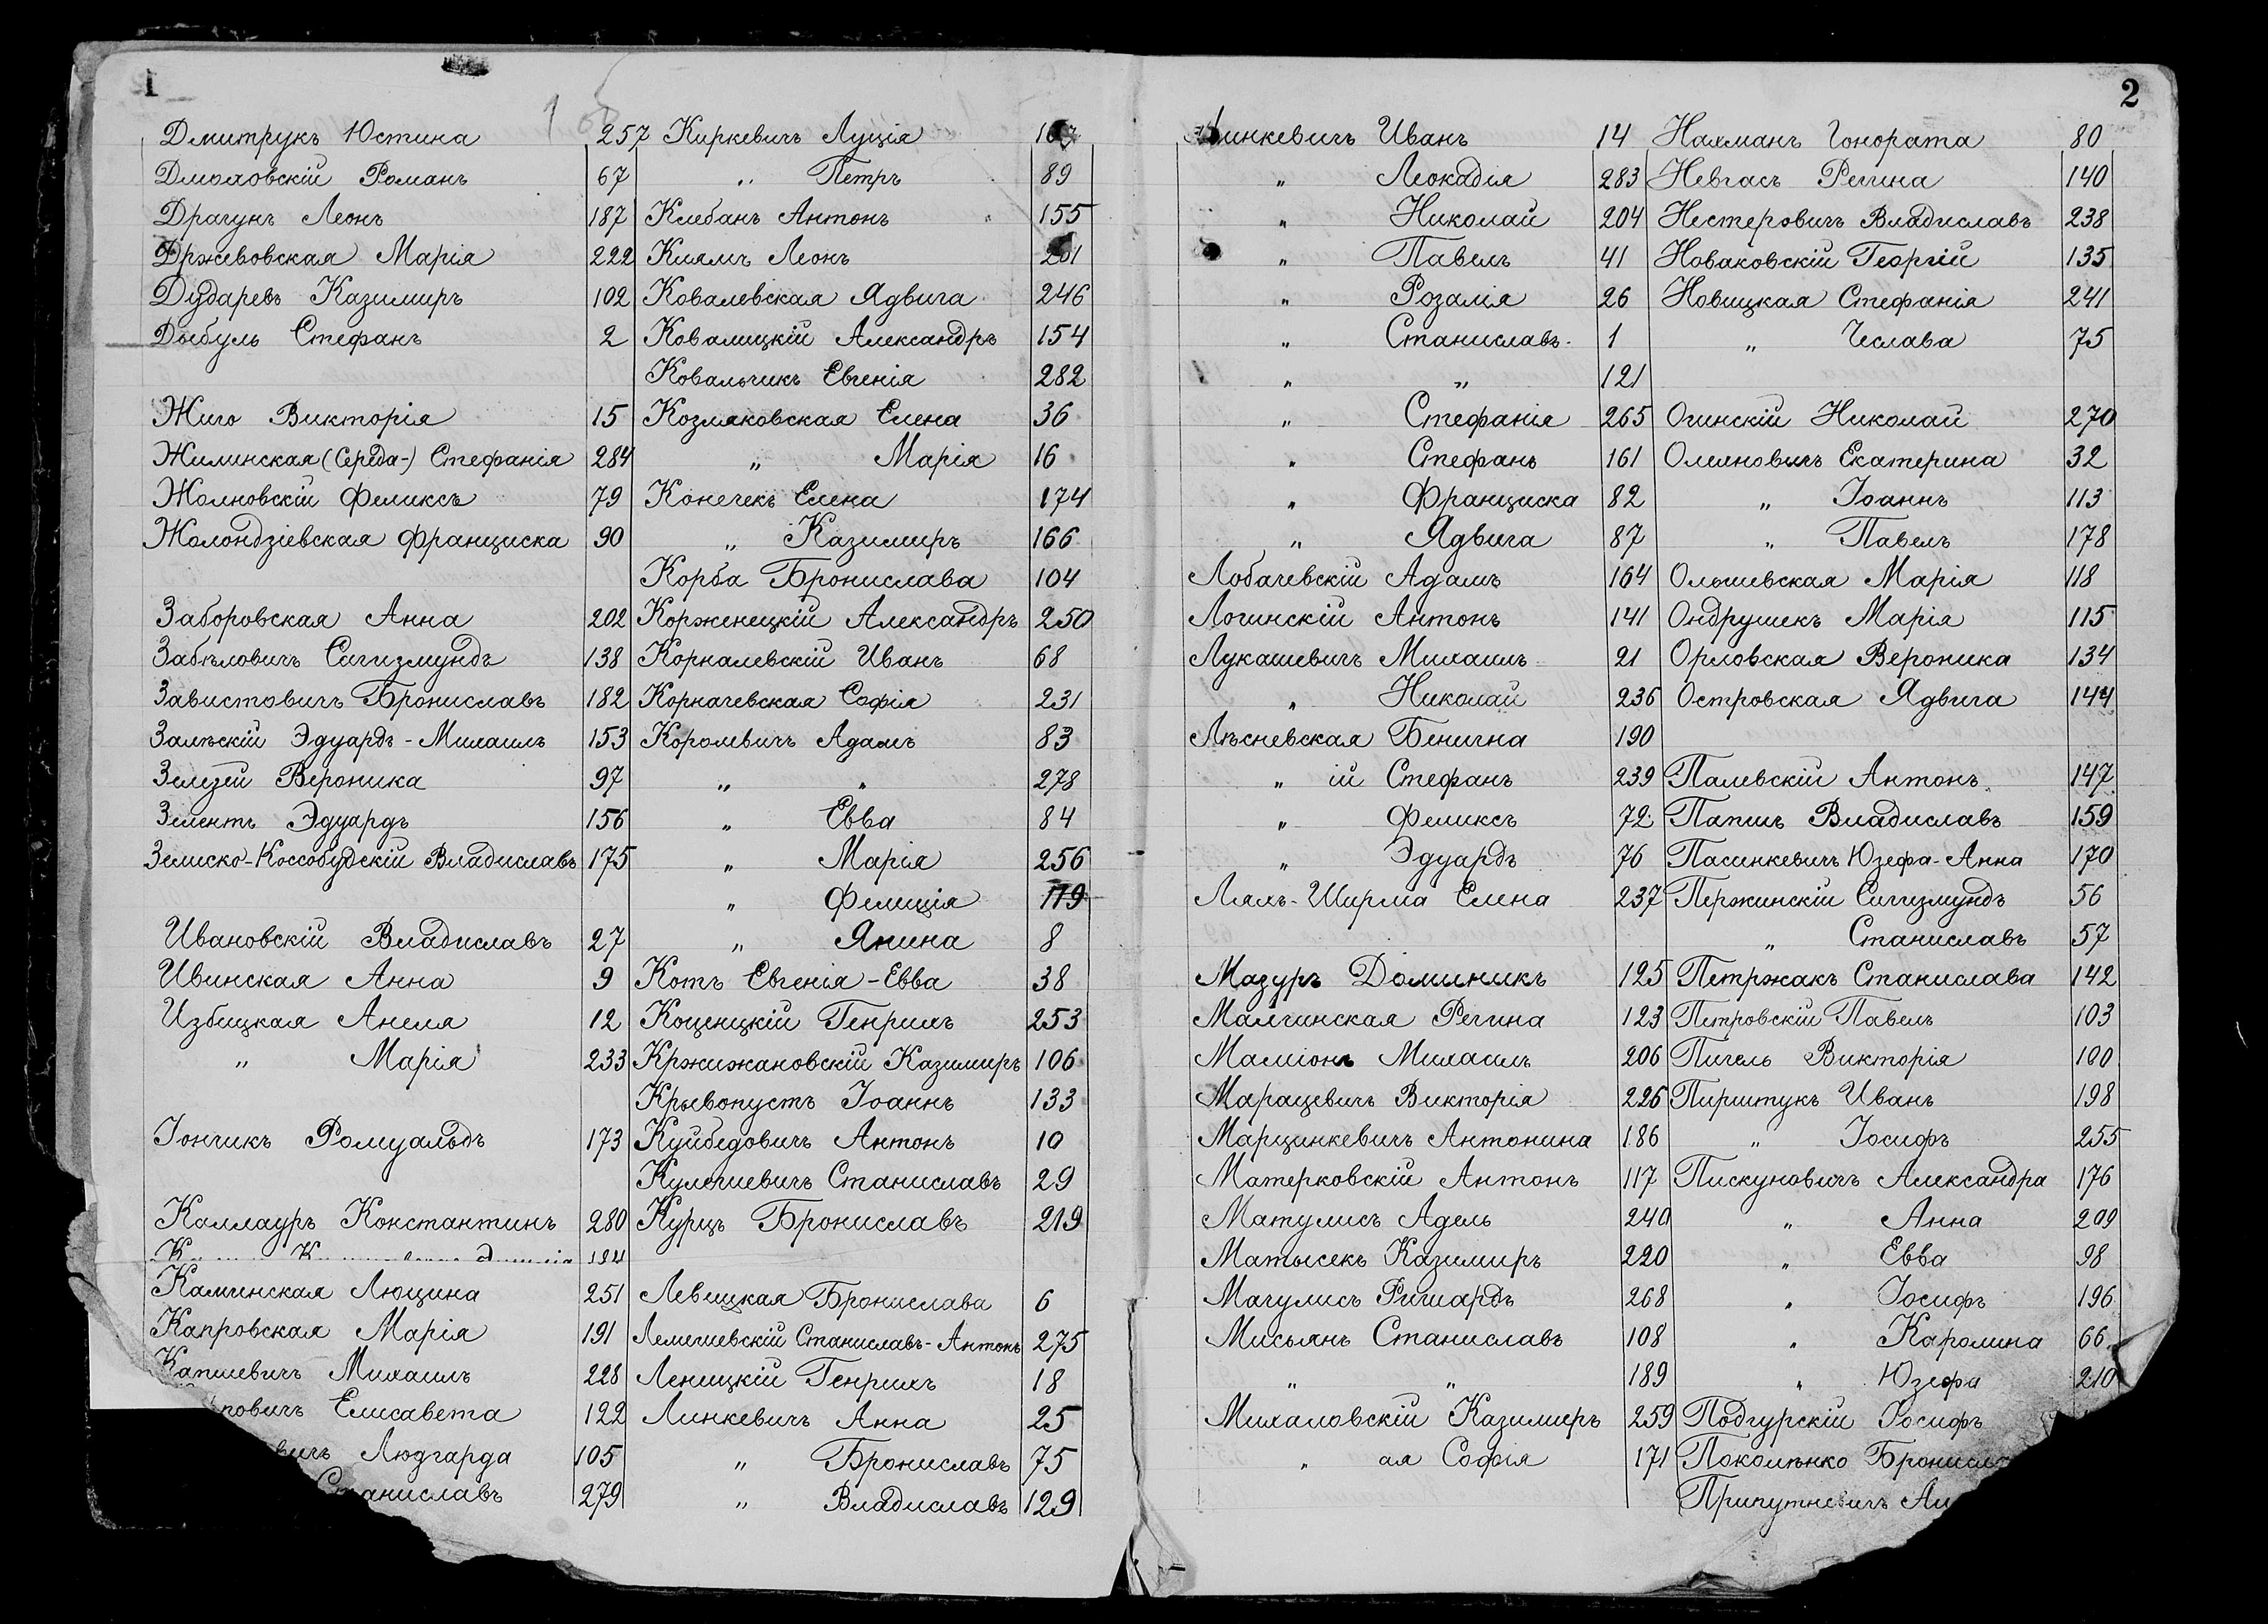 1
Дмитрукъ Юстина 257
Дмоховскій Романъ 67
Драгунъ Леонъ 187
Држевовская Марія 222
Дударевъ Казимиръ 102
Дыбуль Стефанъ 2
Жиго Викторія 15
Жилинская (Середа-) Стефанія 284
Жолновскій Феликсъ 79
Жолондзіевская Франциска 90
Заборовская Анна 202
Забѣловичъ Сигизмундъ 138
Завистовичъ Брониславъ 182
Залѣскій Эдуардъ-Михаилъ 153
Зелезей Вероника 97
Зелентъ Эдуардъ 156
Земиско-Коссобудскій Владиславъ 175
Ивановскій Владиславъ 27
Ивинская Анна 9
Избицкая Анеля 12
„ Марія 233
Іончикъ Ромуальдъ 173
Каллауръ Константинъ 280
184
Каминская Люцина 251
Капровская Марія 191
Капшевичъ Михаилъ 228
повичъ Елисавета 122
вичъ Людгарда 105
Станиславъ 279
Киркевичъ Луція
„ Петръ 89
Клебанъ Антонъ 155
Киямъ Леонъ 201
Ковалевская Ядвига 246
Ковалицкій Александръ 154
Ковальчикъ Евгенія 282
Козляковская Елена 36
„ Марія 16
Конечекъ Елена 174
„ Казимиръ 166
Корба Бронислава 104
Корженецкій Александръ 250
Корналевскій Иванъ 68
Корначевская Софія 231
Королевичъ Адамъ 83
„ „ 278
„ Евва 84
„ Марія 256
„ Фелиція 119
„ Янина 8
Котъ Евгенія-Евва 38
Коценцкій Генрихъ 253
Кржижановскій Казимиръ 106
Крывопустъ Іоаннъ 133
Куйбедовичъ Антонъ 10
Кулешевичъ Станиславъ 29
Курцъ Брониславъ 219
Левицкая Бронислава 6
Лемешевскій Станиславъ-Антонъ 275
Леницкій Генрихъ 18
Линкевичъ Анна 25
„ Брониславъ 75
„ Владиславъ 129
2
Линкевичъ Иванъ 14
„ Леокадія 283
„ Николай 204
„ Павелъ 41
„ Розалія 26
„ Станиславъ 1
„ „ 121
„ Стефанія 265
„ Стефанъ 161
„ Франциска 82
„ Ядвига 87
Лобачевскій Адамъ 164
Логинскій Антонъ 141
Лукашевичъ Михаилъ 21
„ Николай 236
Лѣсневская Бенигна 190
„ ій Стефанъ 239
„ Феликсъ 72
„ Эдуардъ 76
Ляхъ-Ширма Елена 237
Мазуръ Доминикъ 125
Малгинская Регина 123
Маліонъ Михаилъ 206
Марацевичъ Викторія 226
Марцинкевичъ Антонина 186
Матерковскій Антонъ 117
Матулисъ Адель 240
Матысекъ Казимиръ 220
Мачулисъ Ришардъ 268
Мисьянъ Станиславъ 108
„ „ 189
Михаловскій Казимиръ 259
„ ая Софія 171
Нахманъ Гонората 80
Невгасъ Регина 140
Нестеровичъ Владиславъ 238
Новаковскій Георгій 135
Новицкая Стефанія 241
„ Чеслава 75
Огинскій Николай 270
Олеановичъ Екатерина 32
„ Іоаннъ 113
„ Павелъ 178
Ольшевская Марія 118
Ондрушекъ Марія 115
Орловская Вероника 134
Островская Ядвига 144
Палевскій Антонъ 147
Папишъ Владиславъ 159
Пасинкевичъ Юзефа-Анна 170
Пержинскій Сигизмундъ 56
„ Станиславъ 57
Петржакъ Станислава 142
Петровскій Павелъ 103
Пигель Викторія 100
Пирштукъ Иванъ 198
„ Іосифъ 255
Пискуновичъ Александра 176
„ Анна 209
„ Евва 98
„ Іосифъ 196
„ Каролина 66
„ Юзефа 210
Подгурскій Іосифъ
Поколѣнко Бронисл
Припутневичъ